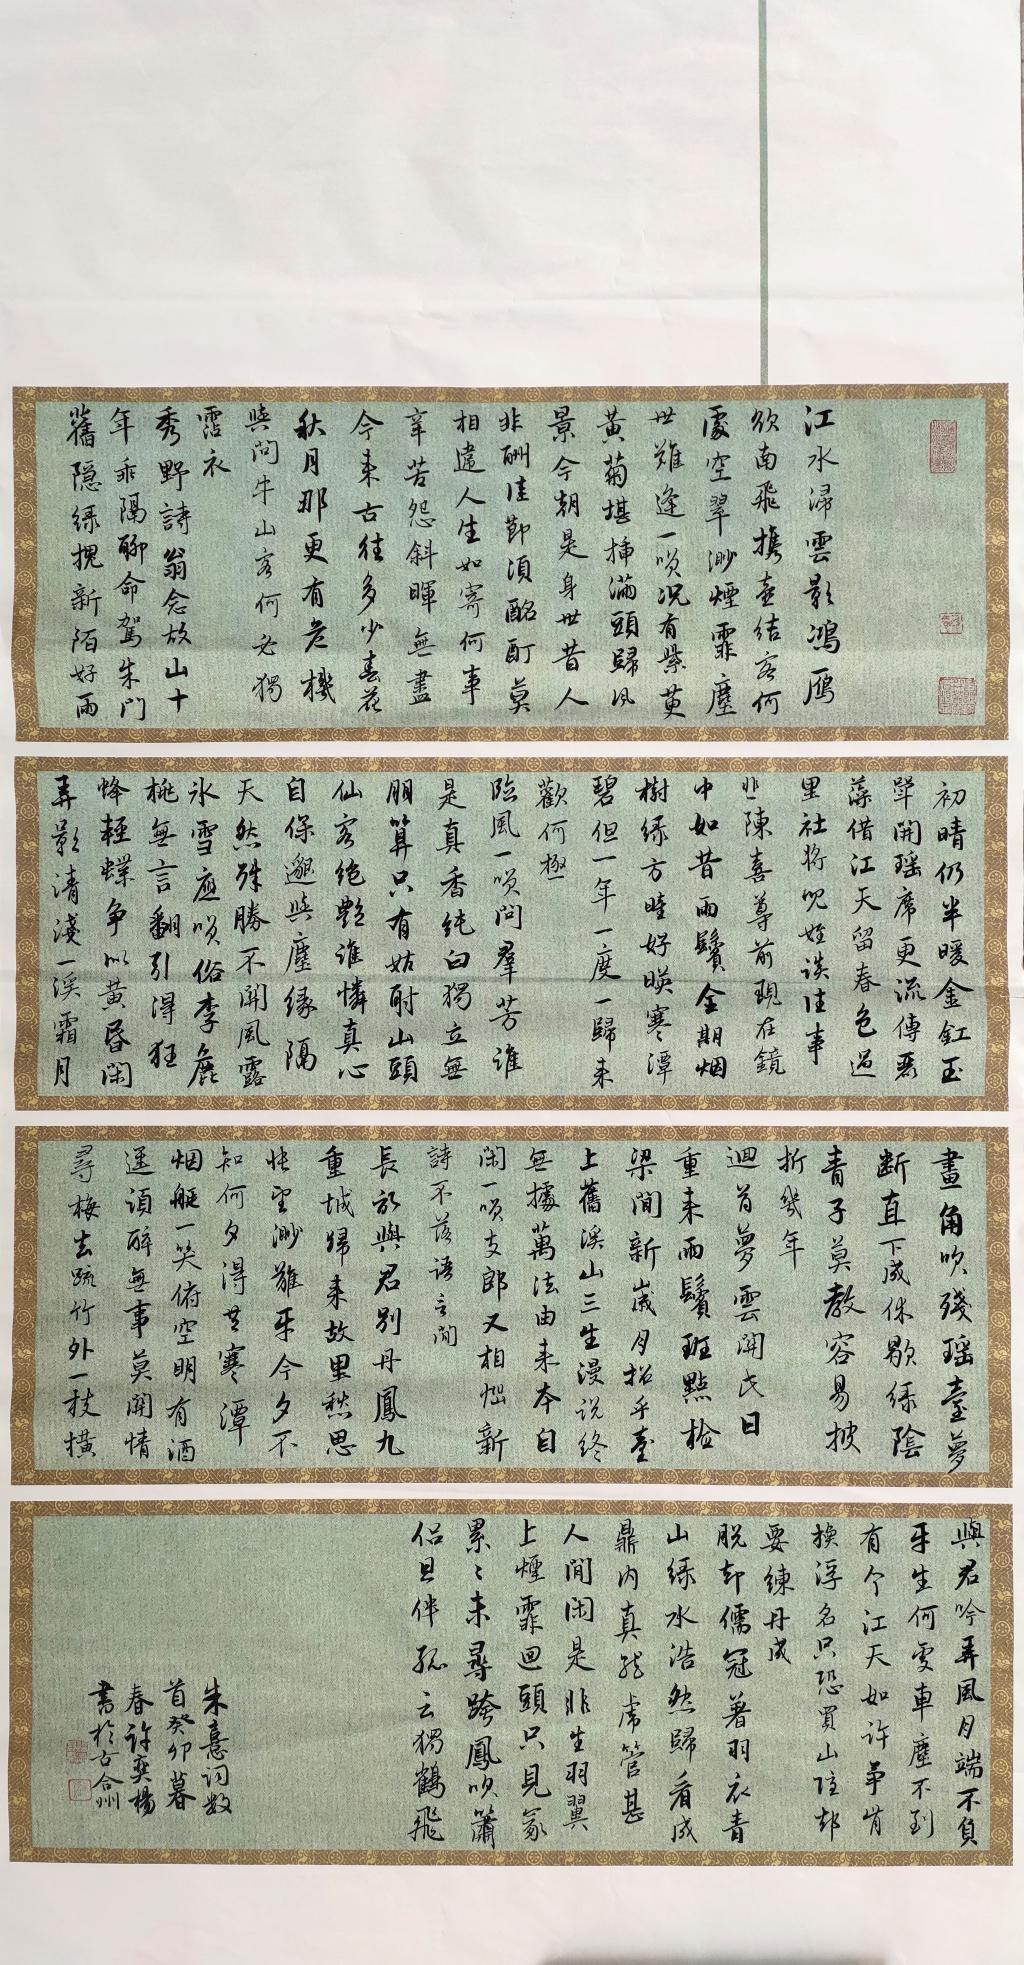 江水浸雲影鴻雁
欲南飛攜壺結客何
處空翠渺煙霏塵
世難逢一笑況有紫萸
黃菊堪插滿頭歸風
景今朝是身世昔人
非酬佳節須酩酊莫
相違人生如寄何事
辛苦怨斜暉無盡
今來古往多少春花
秋月那更有危機
與問牛山客何必獨
霑衣
秀野詩翁念故山十
年乖隔聊命駕朱門
舊隐綠槐新陌好雨
初晴仍半暖金釭玉
斝開瑤席更流傳麗
藻借江天留春色過
里社將兒姪談往事
悲陳喜尊前現在鏡
中如昔兩鬢全期烟
樹綠方瞳好暎寒潭
碧但一年一度一歸来
歡何極
臨風一笑問羣芳誰
是真香純白獨立無
朋算只有姑射山頭
仙客絶艶誰憐真心
自保邈與塵緣隔
天然殊勝不關風露
冰雪應笑俗李麄
桃無言翻引得狂
蜂輕蝶争似黃昏閑
弄影清淺一溪霜月
畫角吹殘瑶臺夢
断直下成休歇綠陰
青子莫教容易披
折幾年
迴首夢雲開此日
重来兩鬢斑點檢
梁間新歲月招手臺
上舊溪山三生漫説终
無據萬法由来本自
閑一笑支郎又相惱新
詩不落語言間
長記與君别丹鳳九
重城歸来故里愁思
悵望渺難平今夕不
知何夕得共寒潭
烟艇一笑俯空明有酒
逕須醉無事莫關情
尋梅去疏竹外一枝橫
與君吟弄風月端不負
平生何處車塵不到
有个江天如許争肯
換浮名只恐買山隱却
要練丹成
脱却儒冠著羽衣青
山綠水浩然歸看成
鼎内真龍虎管甚
人間閑是非生羽翼
上煙霏回頭只見冢
累々未尋跨鳳吹簫
侣且伴孤云獨鶴飛
朱熹词數
首癸卯暮
春許奕楊
書於古合州